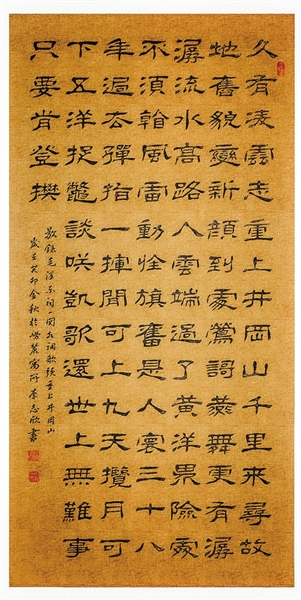 久有凌雲志重上井岡山千里來尋故
地舊貌變新顏到處鶯謌燕舞更有潺
潺流水高路入雲端過了黃洋界險處
不須看風雷動旌旗奮是人寰三十八
年過去彈指一揮間可上九天攬月可
下五洋捉鱉談咲凱歌還世上無難事
只要肯登攀
敬錄毛澤東詞一闋水調歌頭重上井岡山
癸卯金秋於寓所李志欣書